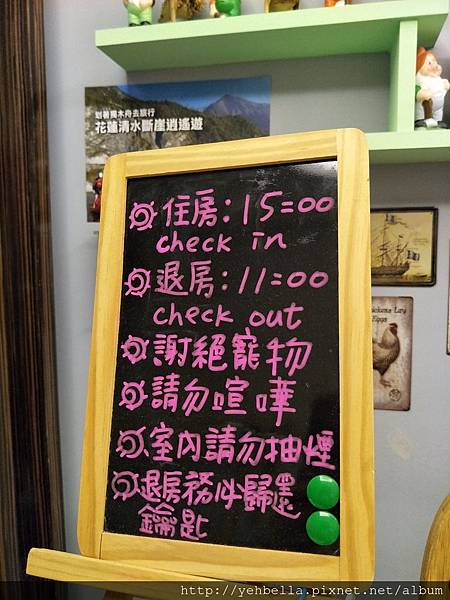 划著獨木舟去旅行
花蓮清水斷崖逍遙遊
住房:15:00
check in
退房:11:00
check out
謝絕寵物
請勿喧嘩
室內請勿抽煙
退房務必歸還
鑰匙
Chickens Lay
Eggs
http://yehbella.pixnet.net/album